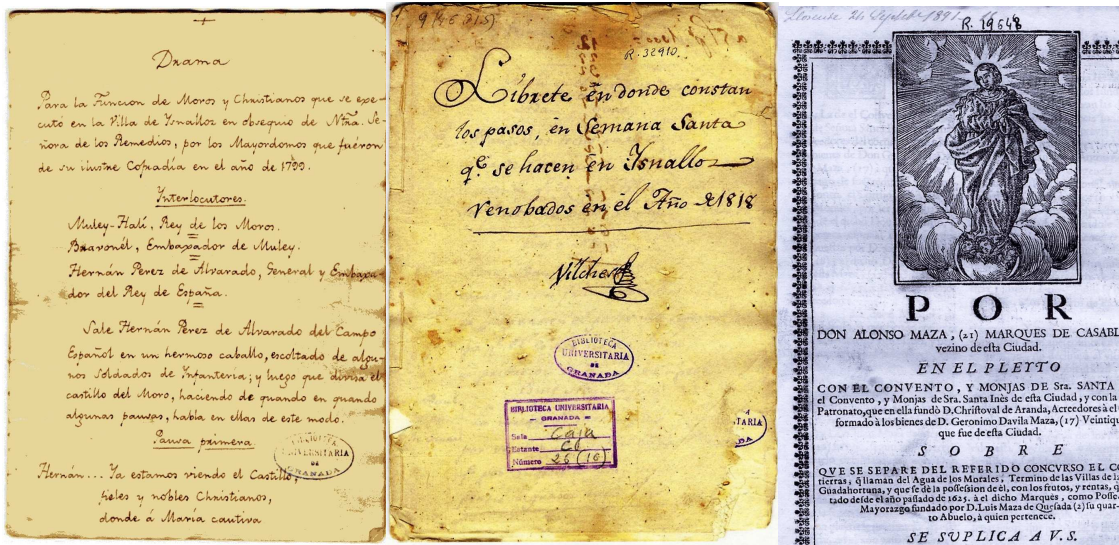 Drama
Para la Funcion de Moros y Christianos que se exe-
cutó en la Villa de Ysnalloz en obsequio de Ntra. Se-
ñora de los Remedios, por los Mayordomos que fueron
de su ilustre Cofradía en el año de 1799.
Interlocutores.
Muley-Halí, Rey de los Moros.
Bravonél, Embaxador de Muley.
Hernán Perez de Alvarado, General y Embaxa-
dor del Rey de España.
Sale Hernán Perez de Alvarado del Campo
Español en un hermoso caballo, escoltado de algu-
nos Soldados de Ynfantería; y luego que divisa el
castillo del Moro, haciendo de quando en quando
algunas pausas, habla en ellas de este modo.
Pausa primera.
Hernán... Ya estamos viendo el Castillo,
fieles y nobles Christianos,
donde á María cautiva
R. 32910.
Librete en donde constan
los pasos, en Semana Santa
qe. se hacen en Ysnalloz
renobados en el Año D1818
Vilches
BIBLIOTECA
UNIVERSITARIA
DE
GRANADA
BIBLIOTECA UNIVERSITARIA
GRANADA
Sala Caja
Estante C1
Número 26 (16)
TARIA
DA
Llorente 24 1891
R. 19648
POR
DON ALONSO MAZA, (21) MARQUES DE CASABL
vezino de esta Ciudad.
EN EL PLEYTO
CON EL CONVENTO, Y MONJAS DE Sra. SANTA
el Convento, y Monjas de Sra. Santa Inès de esta Ciudad, y con la
Patronato, que en ella fundò D. Christoval de Aranda, Acreedores à el
formado à los bienes de D. Geronimo Davila Maza, (17) Veintiqu
que fue de esta Ciudad.
SOBRE
QVE SE SEPARE DEL REFERIDO CONCVRSO EL CO
tierras, q̃ llaman del Agua de los Morales, Termino de las Villas de la
Guadahortuna, y que se dè la possession de èl, con los frutos, y rentas, q
tado desde el año passado de 1625. à el dicho Marquès, como Posse
Mayorazgo fundado por D. Luis Maza de Quesada (2) su quar-
to Abuelo, à quien pertenece.
SE SVPLICA A V.S.